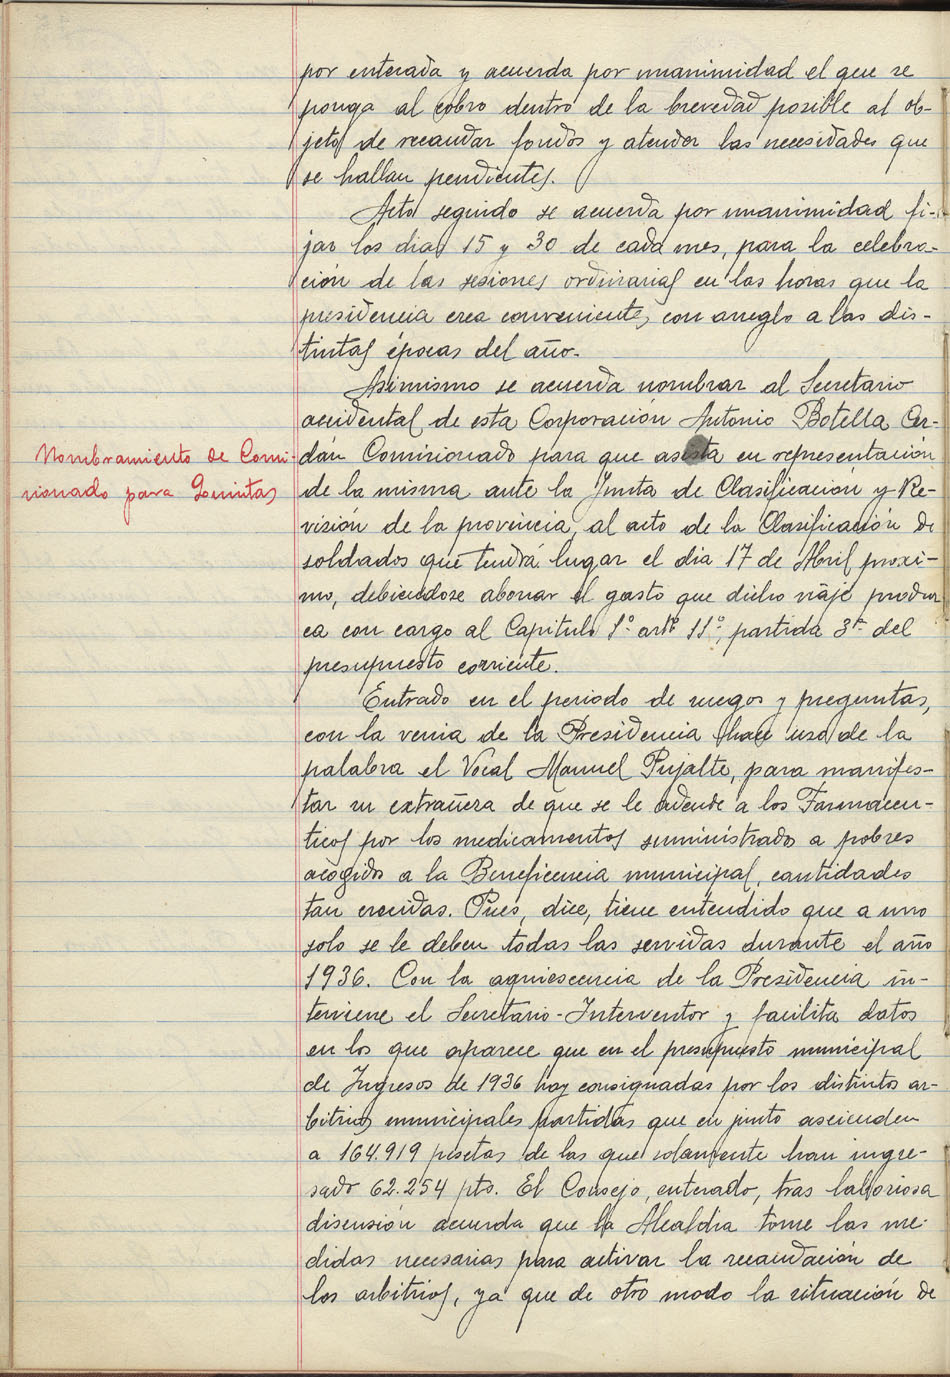 por enterada y acuerda por unanimidad el que se
ponga al cobro dentro de la brevedad posible al ob-
jeto de recaudar fondos y atender las necesidades que
se hallan pendientes.
Acto seguido se acuerda por unanimidad fi-
jar los dias 15 y 30 de cada mes, para la celebra-
ción de las sesiones ordinarias en las horas que la
presidencia crea conveniente, con arreglo a las dis-
tintas épocas del año.
Asimismo se acuerda nombrar al Secretario
accidental de esta Corporación Antonio Botella Cer-
Nombramiento de Comi-
sionado para Quintas
dán Comisionado para que asista en representación
de la misma ante la Junta de Clasificación y Re-
visión de la provincia, al acto de la Clasificación de
soldados que tendrá lugar el dia 17 de Abril proxi-
mo, debiendose abonar el gasto que dicho viaje produz
ca con cargo al Capitulo 1º artº 11º, partida 3ª del
presupuesto corriente.
Entrado en el periodo de ruegos y preguntas,
con la venia de la Presidencia hace uso de la
palabra el Vocal Manuel Pujalte, para manifes-
tar su extrañera de que se le adeude a los Farmaceu-
ticos por los medicamentos suministrados a pobres
acogidos a la Beneficencia municipal, cantidades
tan crecidas. Pues, dice, tiene entendido que a uno
solo se le deben todas las servidas durante el año
1936. Con la aquiescencia de la Presidencia in-
terviene el Secretario-Interventor y facilita datos
en los que aparece que en el presupuesto municipal
de Ingresos de 1936 hay consignadas por los distintos ar-
bitrios municipales partidas que en junto ascienden
a 164.919 pesetas de las que solamente han ingre-
sado 62.254 pts. El Consejo, enterado, tras laboriosa
discusión acuerda que la Alcaldia tome las me-
didas necesarias para activar la recaudación de
los arbitrios, ya que de otro modo la situación de